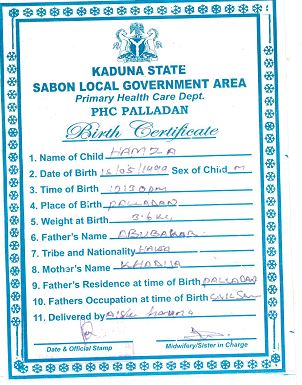 KADUNA STATE
SABON LOCAL GOVERNMENT AREA
Primary Health Care Dept.
PHC PALLADAN
Birth Certificate
1. Name of Child HAMZA
2. Date of Birth Sex of Child M
3. Time of Birth
4. Place of Birth PALLADAN
5. Weight at Birth 3.6kg
6. Father's Name ABUBAKAR
7. Tribe and Nationality HAUSA
8. Mother's Name KHADIJA
9. Father's Residence at time of Birth PALLADAN
10. Fathers Occupation at time of Birth
11. Delivered by
Date & Official Stamp Midwifery/Sister in Charge